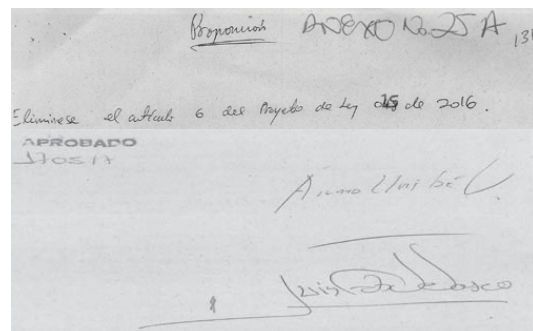 Proposición ANEXO No. 25 A
Eliminese el artículo 6 del Proyecto de Ley 15 de 2016.
APROBADO
170517
Alvaro Uribe V.